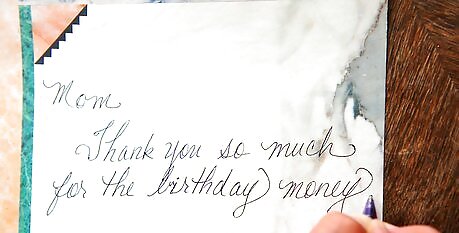 Mom
Thank you so much
for the birthday money